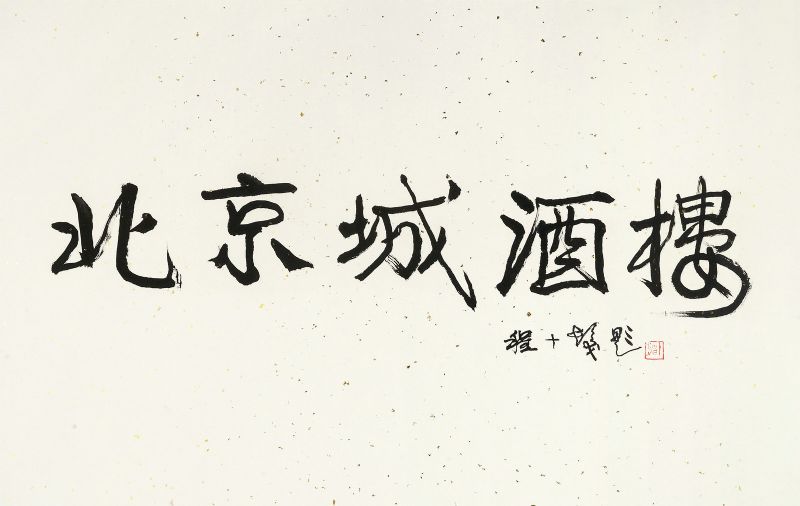 北京城酒樓
程十髮題